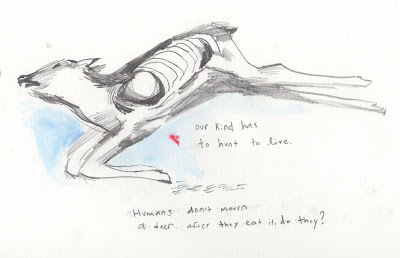 our kind has
to hunt to live.
Humans don't mourn
a deer after they eat it, do they?